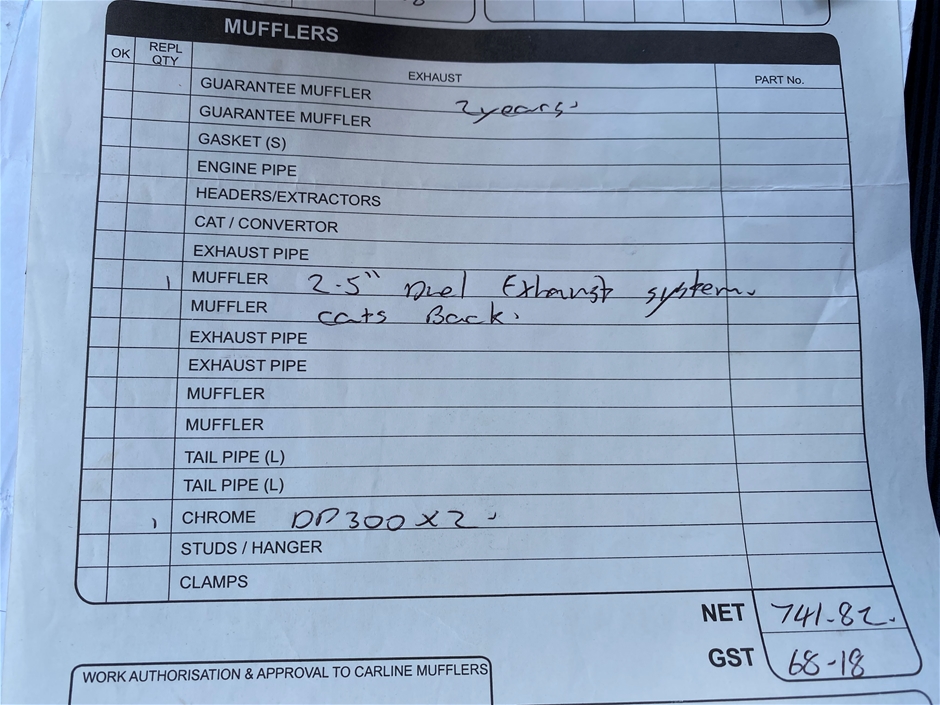 MUFFLERS
OK REPL QTY EXHAUST PART No.
GUARANTEE MUFFLER
GUARANTEE MUFFLER 2 years.
GASKET (S)
ENGINE PIPE
HEADERS/EXTRACTORS
CAT / CONVERTOR
EXHAUST PIPE
1 MUFFLER 2-5" Duel Exhaust system.
MUFFLER cats Back.
EXHAUST PIPE
EXHAUST PIPE
MUFFLER
MUFFLER
TAIL PIPE (L)
TAIL PIPE (L)
1 CHROME DP300 X 2.
STUDS / HANGER
CLAMPS
NET 741-82.
GST 68-18
WORK AUTHORISATION & APPROVAL TO CARLINE MUFFLERS